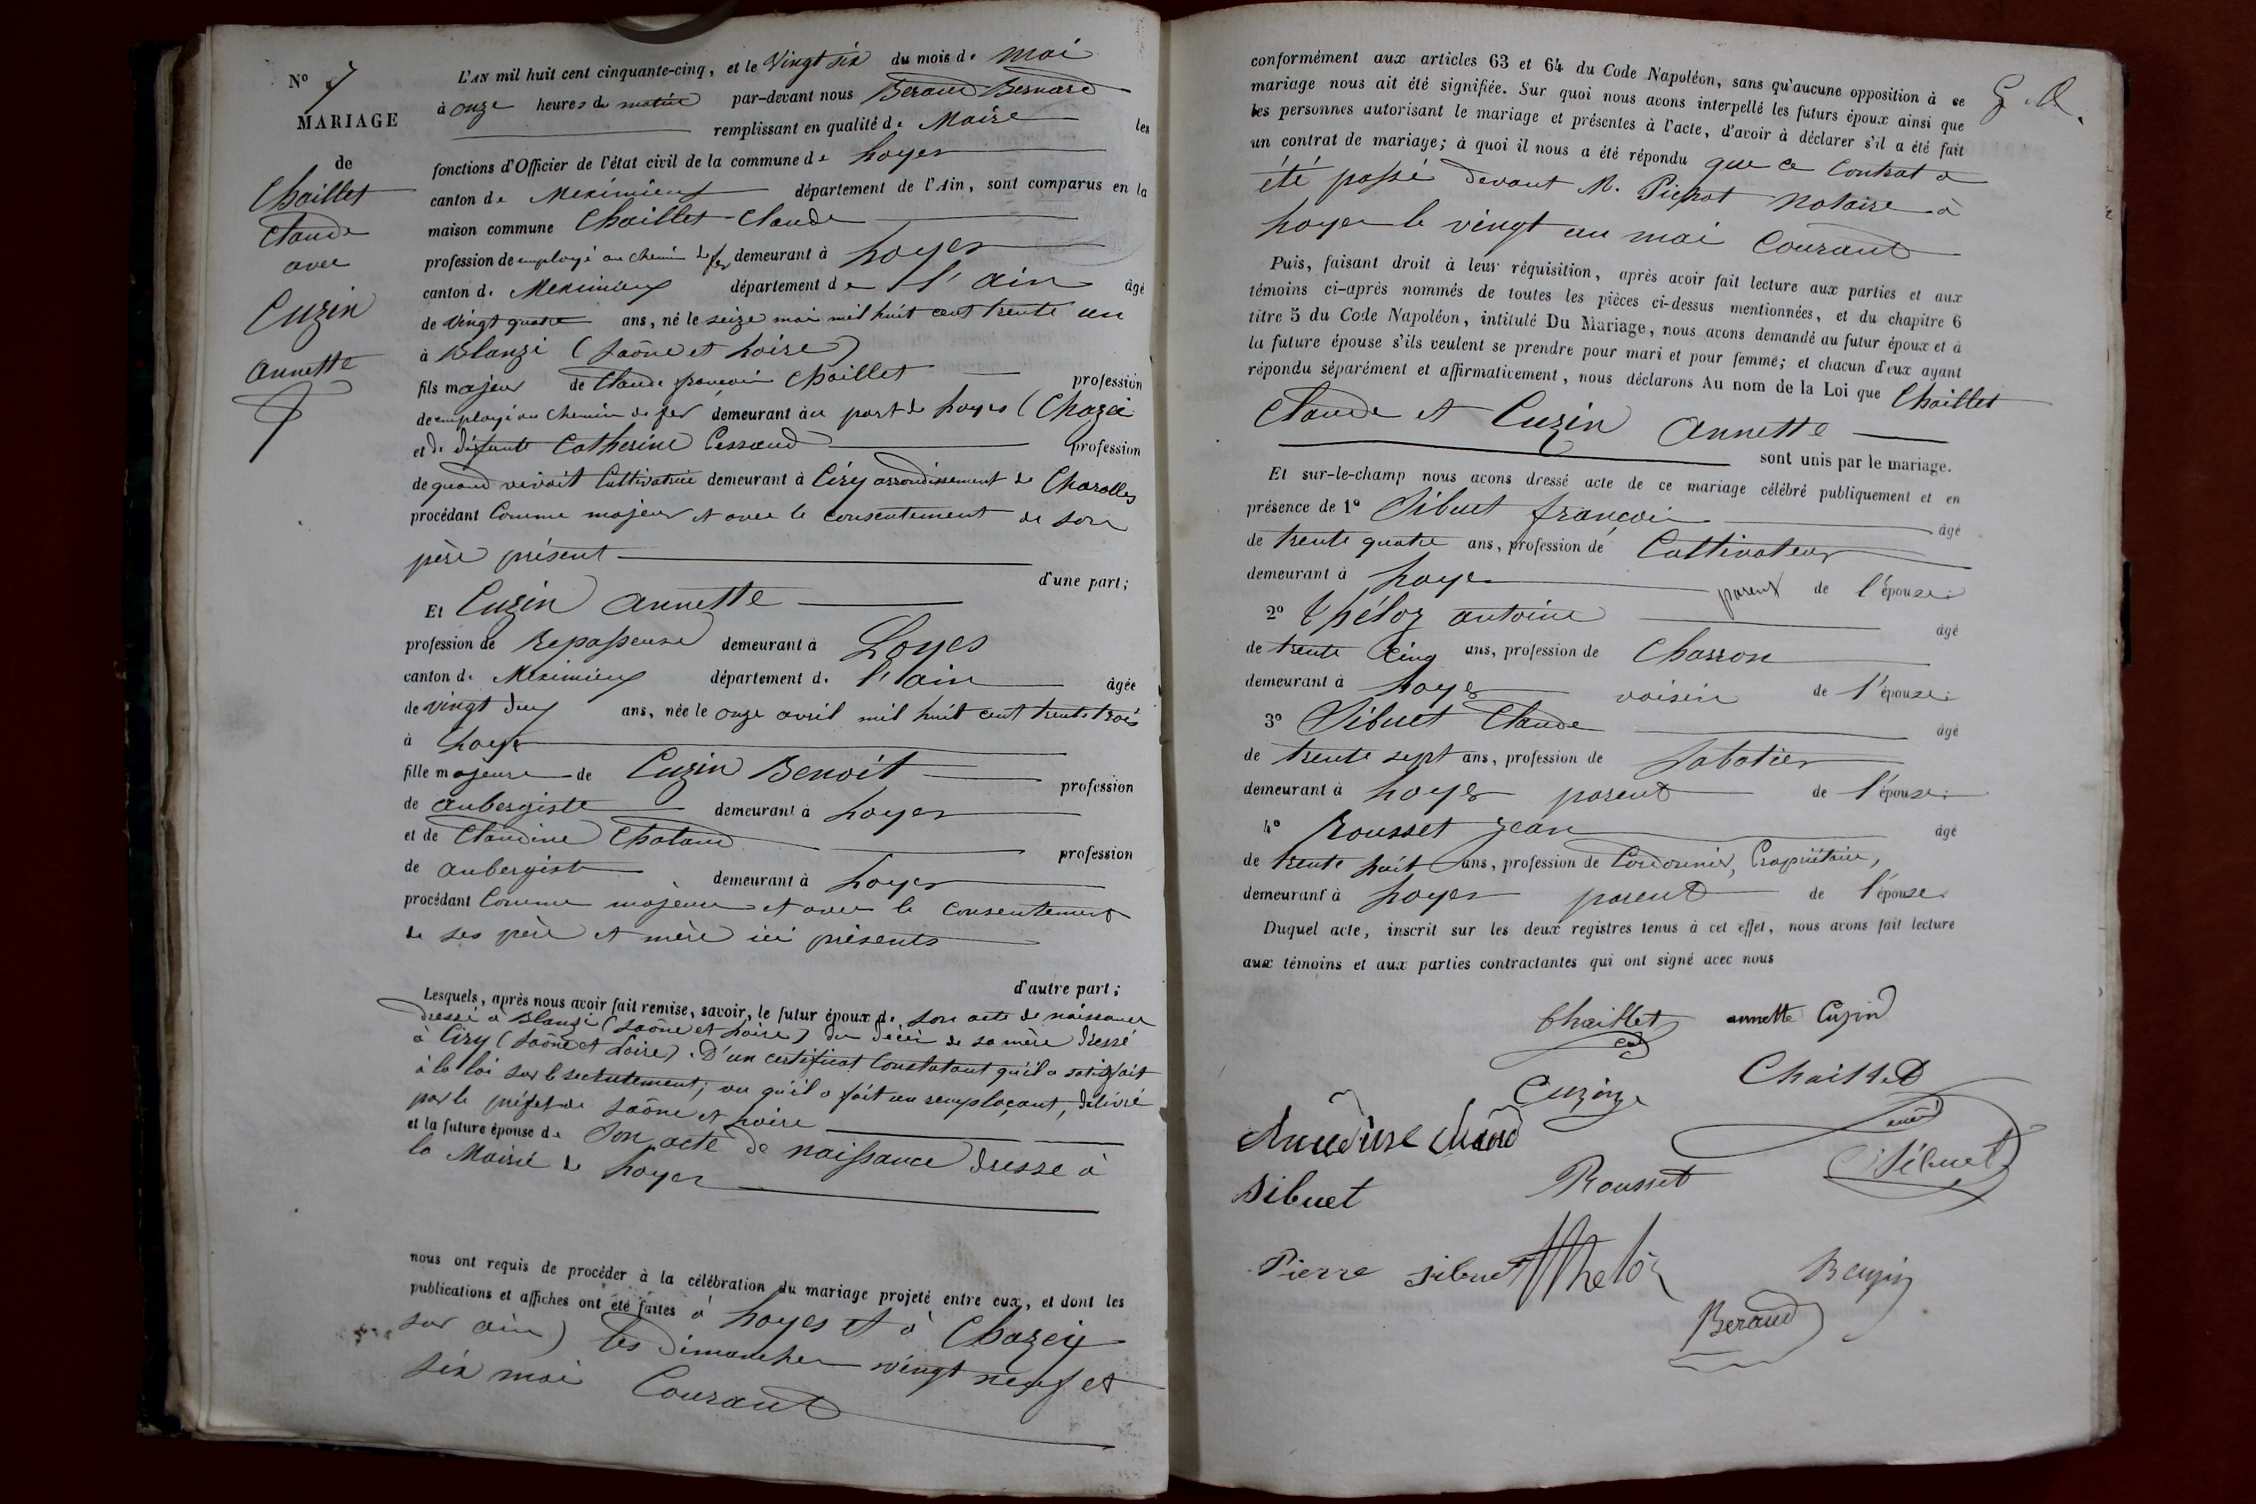 N° 7
MARIAGE
de
Chaillet
Claude
avec
Cuzin
annette
L'AN mil huit cent cinquante-cinq, et le Vingt six du mois de mai
à onze heures du matin par-devant nous Beraud Bernard
remplissant en qualité de Maire les
fonctions d'Officier de l'état civil de la commune de Loyes
canton de Meximieux département de l'Ain, sont comparus en la
maison commune Chaillet Claude
profession de employé au chemin de fer demeurant à Loyes
canton de Meximieux département de l'ain âgé
de vingt quatre ans, né le seize mai mil huit cent trente un
à Blanzi (Saône et Loire)
fils majeur de Claude françois Chaillet profession
de employé au chemin de fer demeurant au port de Loyes (Chazei
et de défunte Catherine profession
de quand vivait Cultivatrice demeurant à Ciry arrondissement de Charolles
procédant Comme majeur et avec le consentement de son
père présent
d'une part;
Et Cuzin annette
profession de Repasseuse demeurant à Loyes
canton de Meximieux département de l'ain âgée
de vingt deux ans, née le onze avril mil huit cent trente trois
à Loyes
fille majeure de Cuzin Benoit profession
de aubergiste demeurant à Loyes
et de Claudine Chataud profession
de aubergiste demeurant à Loyes
procédant Comme majeure et avec le consentement
de ses père et mère ici présents
d'autre part;
Lesquels, après nous avoir fait remise, savoir, le futur époux de son acte de naissance
dressé à Blanzi (Saône et Loire) du décès de sa mère dressé
à Ciry (Saône et Loire). D'un certificat Constatant qu'il a satisfait
à la loi sur le recrutement, ou qu'il a fait un remplaçant, délivré
par le préfet de Saône et Loire
et la future épouse de Son acte de naissance dressé à
la Mairie de Loyes
nous ont requis de procéder à la célébration du mariage projeté entre eux, et dont les
publications et affiches ont été faites à Loyes et à Chazey
sur ain) les Dimanches vingt neuf et
six mai Courant
conformément aux articles 63 et 64 du Code Napoléon, sans qu'aucune opposition à ce
mariage nous ait été signifiée. Sur quoi nous avons interpellé les futurs époux ainsi que
les personnes autorisant le mariage et présentes à l'acte, d'avoir à déclarer s'il a été fait
un contrat de mariage; à quoi il nous a été répondu que ce Contrat a
été passé devant M. notaire à
Loyes le vingt un mai Courant
Puis, faisant droit à leur réquisition, après avoir fait lecture aux parties et aux
témoins ci-après nommés de toutes les pièces ci-dessus mentionnées, et du chapitre 6
titre 5 du Code Napoléon, intitulé Du Mariage, nous avons demandé au futur époux et à
la future épouse s'ils veulent se prendre pour mari et pour femme; et chacun d'eux ayant
répondu séparément et affirmativement, nous déclarons Au nom de la Loi que Chaillet
Claude et Cuzin Annette
sont unis par le mariage.
Et sur-le-champ nous avons dressé acte de ce mariage célébré publiquement et en
présence de 1° Sibuet françois âgé
de trente quatre ans, profession de Cultivateur
demeurant à Loyes parent de l'épouse
2° Théloz antoine âgé
de trente Cinq ans, profession de Charron
demeurant à Loyes voisin de l'épouse
3° Sibuet Claude âgé
de trente sept ans, profession de Sabotier
demeurant à Loyes parent de l'épouse
4° Rousset Jean âgé
de trente huit ans, profession de Cordonnier, Propriétaire,
demeurant à Loyes parent de l'épouse
Duquel acte, inscrit sur les deux registres tenus à cet effet, nous avons fait lecture
aux témoins et aux parties contractantes qui ont signé avec nous
Chaillet annette Cuzin
Cuzin Chaillet
Sibuet
Sibuet Rousset
Pierre Sibuet Theloz B Cuzin
Beraud